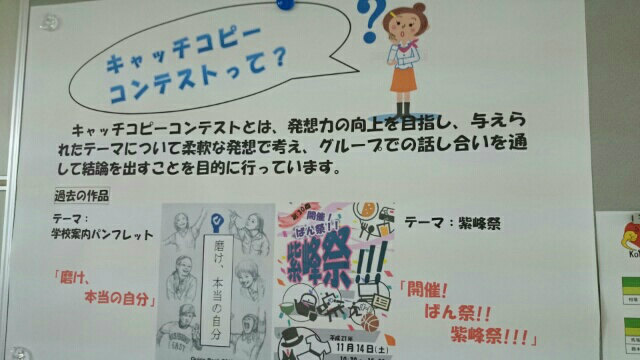 キャッチコピー
コンテストって？
?
キャッチコピーコンテストとは、発想力の向上を目指し、与えら
れたテーマについて柔軟な発想で考え、グループでの話し合いを通
して結論を出すことを目的に行っています。
過去の作品
テーマ：
学校案内パンフレット
「磨け、
本当の自分」
磨け、本当の自分
開催！
ばん祭！！
紫峰祭!!!
平成27年
11月14日(土)
テーマ：紫峰祭
「開催!
ばん祭!!
紫峰祭!!!」